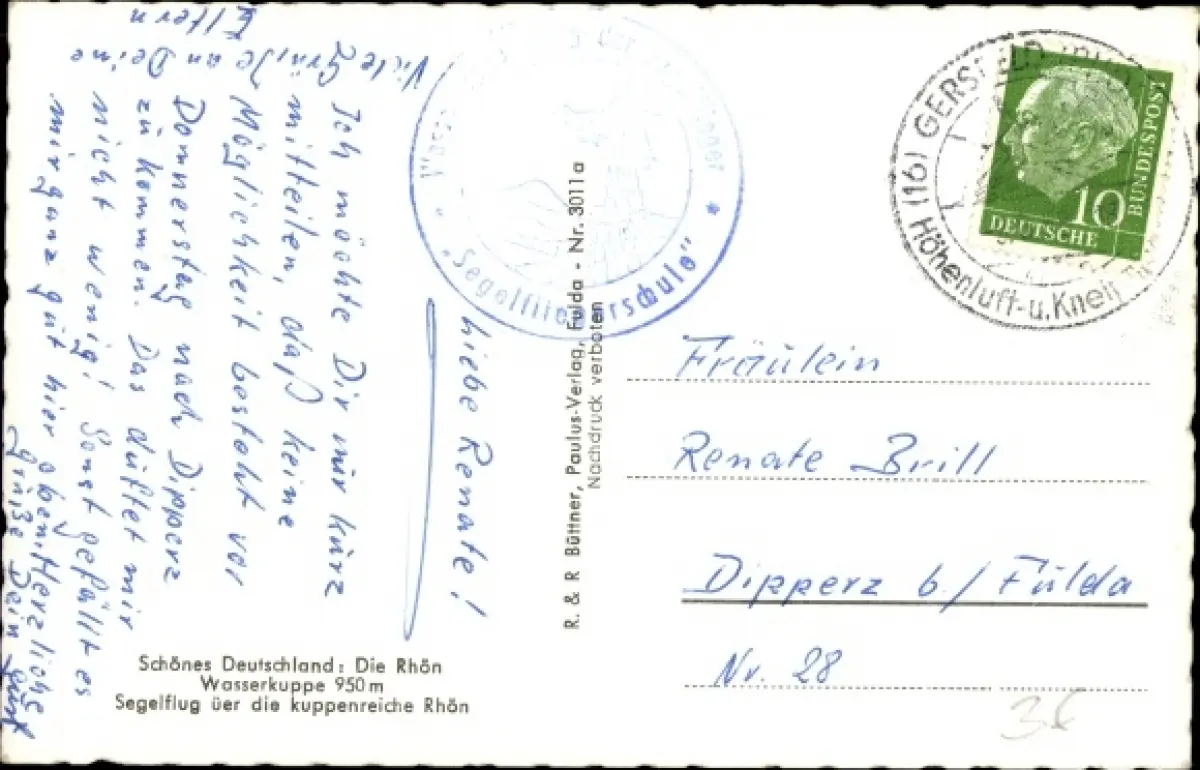 Liebe Renate!
Ich möchte Dir nur kurz
mitteilen, daß keine
Möglichkeit besteht vor
Donnerstag nach Dipperz
zu kommen. Das düftet mir
nicht wenig! Sonst gefällt es
mir ganz gut hier oben. Herzliche
Grüße Dein
Viele Grüße an Deine
Eltern
Schönes Deutschland: Die Rhön
Wasserkuppe 950 m
Segelflug üer die kuppenreiche Rhön
R. & R. Büttner, Paulus-Verlag, Fulda - Nr. 3011a
Nachdruck verboten
"Segelfliegerschule"
(16) GERSFELD
Höhenluft- u. Kneip
10
DEUTSCHE
BUNDESPOST
Fräulein
Renate Brill
Dipperz b/ Fulda
Nr. 28